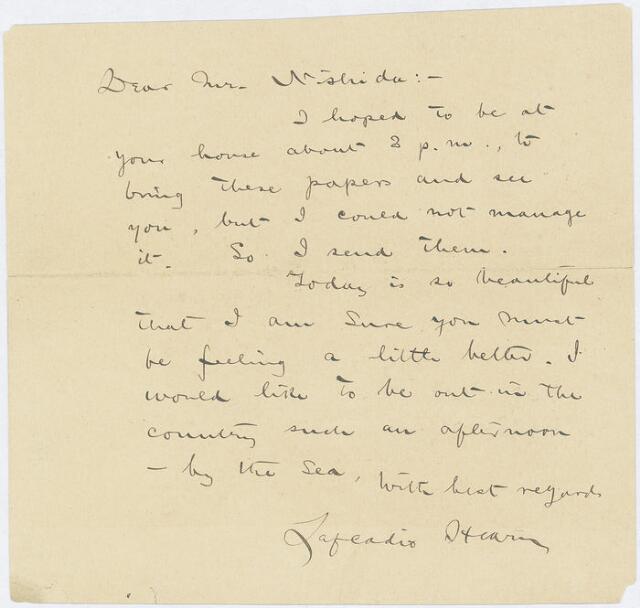 Dear Mr. Nishida:-
I hoped to be at
your house about 3 p.m., to
bring these papers and see
you, but I could not manage
it. So I send them.
Today is so beautiful
that I am sure you must
be feeling a little better. I
would like to be out in the
country such an afternoon
- by the sea, With best regards
Lafcadio Hearn